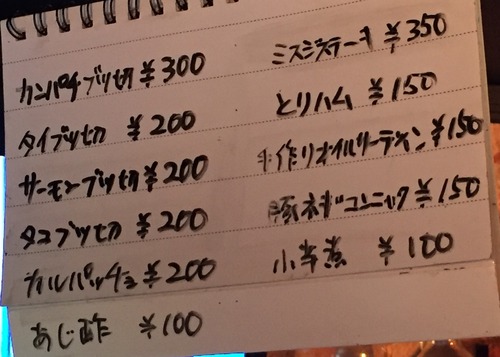 カンパチブツ切 ¥300
タイブツ切 ¥200
サーモンブツ切 ¥200
タコブツ切 ¥200
カルパッチョ ¥200
あじ酢 ¥100
ミスジステーキ ¥350
とりハム ¥150
手作りオイルサーディン ¥150
豚ネギコンニャク ¥150
小芋煮 ¥100